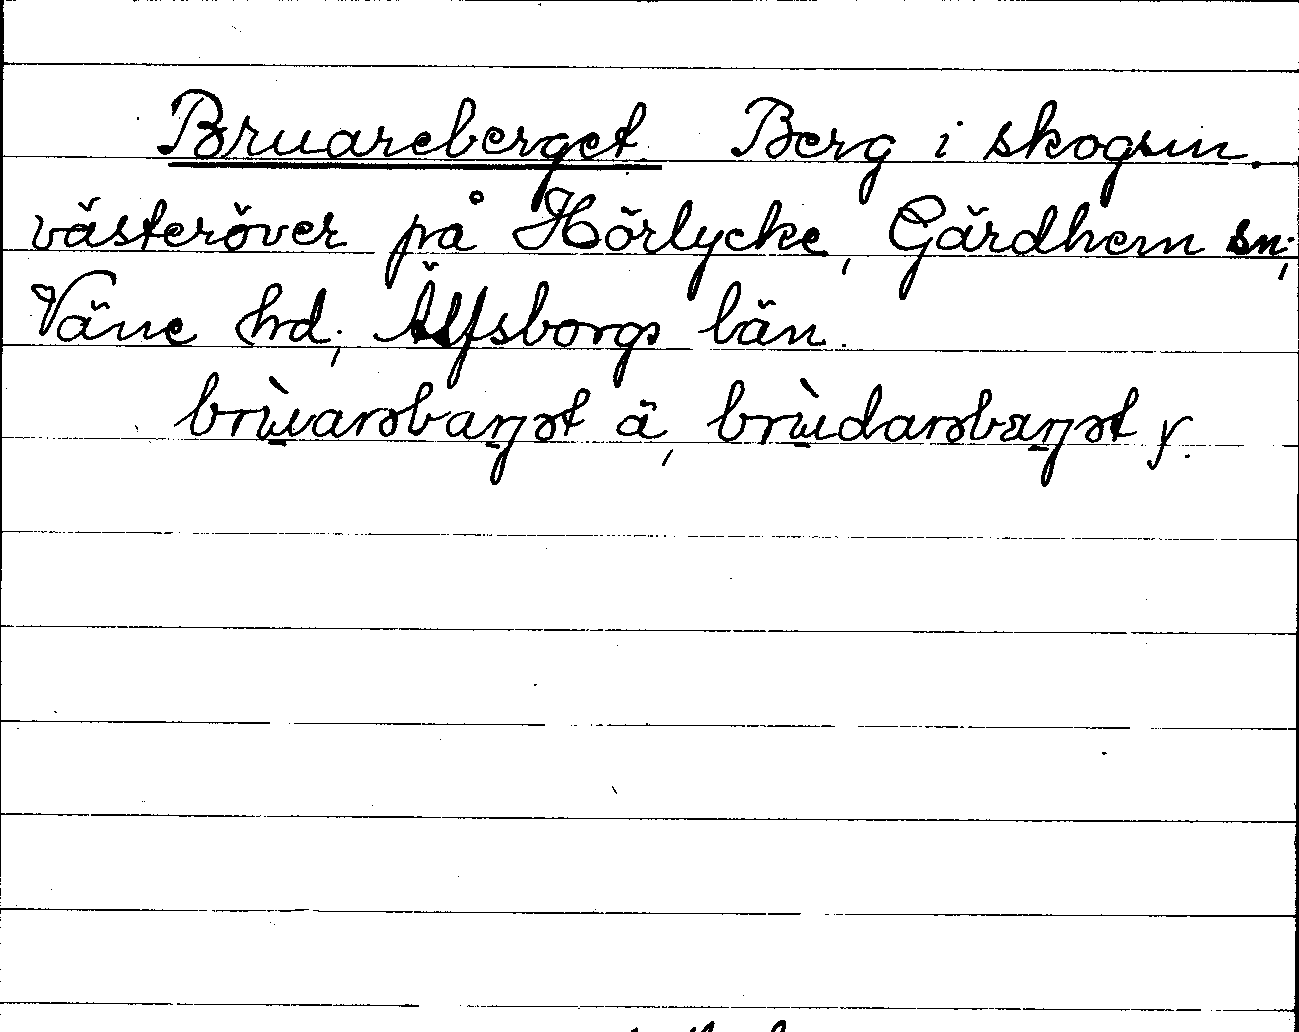 Bruareberget. Berg i skogen.
västeröver på Hörlycke, Gärdhem sn;
Väne hd; Älfsborgs län.
brùarəbaŋət ä, brùdarəbaŋət y.